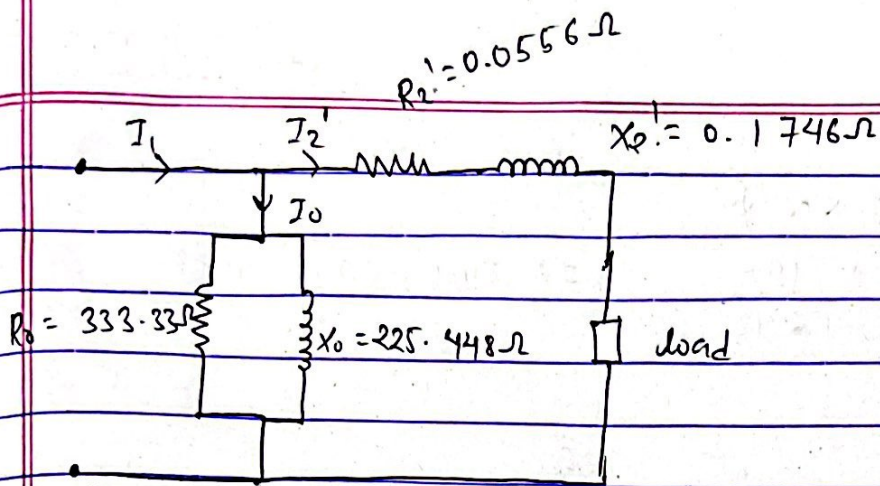 R₂' = 0.0556 Ω
I₁ I₂' X₂' = 0.1746 Ω
I₀
R₀ = 333.33 Ω X₀ = 225.448 Ω load